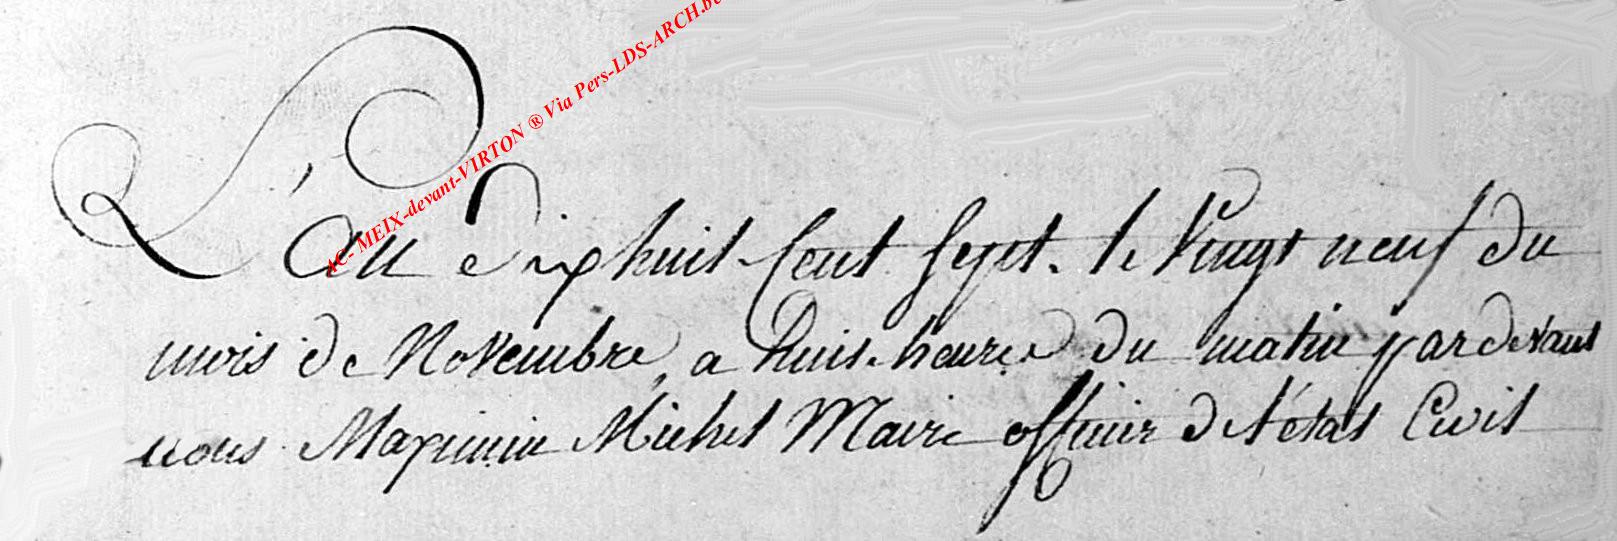 AC- MEIX-devant-VIRTON ® Via Pers-LDS-ARCH.be
L'an dixhuit Cent Sept. le Vingt neuf du
mois de Novembre, a huit heures du matin pardevant
nous Maximin Michel Maire officier de l'état Civil